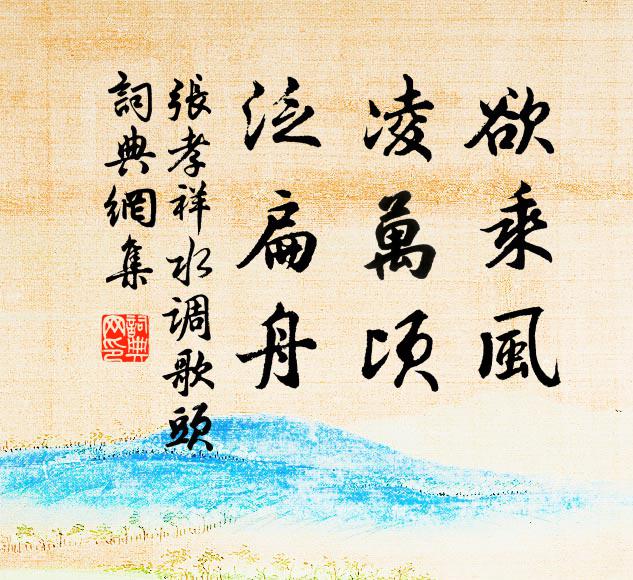 欲乘風
凌萬頃
泛扁舟
張孝祥水調歌頭
詞典網集
詞典
网印